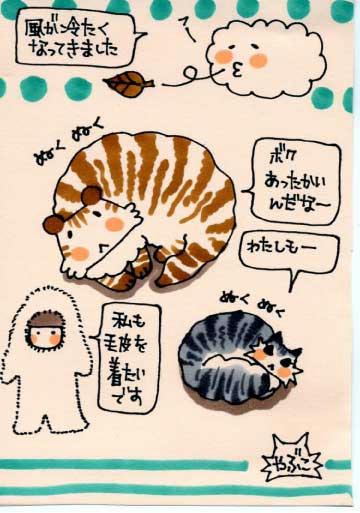 風が冷たく
なってきました
ぬく ぬく
ボク
あったかい
んだな〜
わたしもー
ぬく ぬく
私も
毛皮を
着たい
です
やぶこ